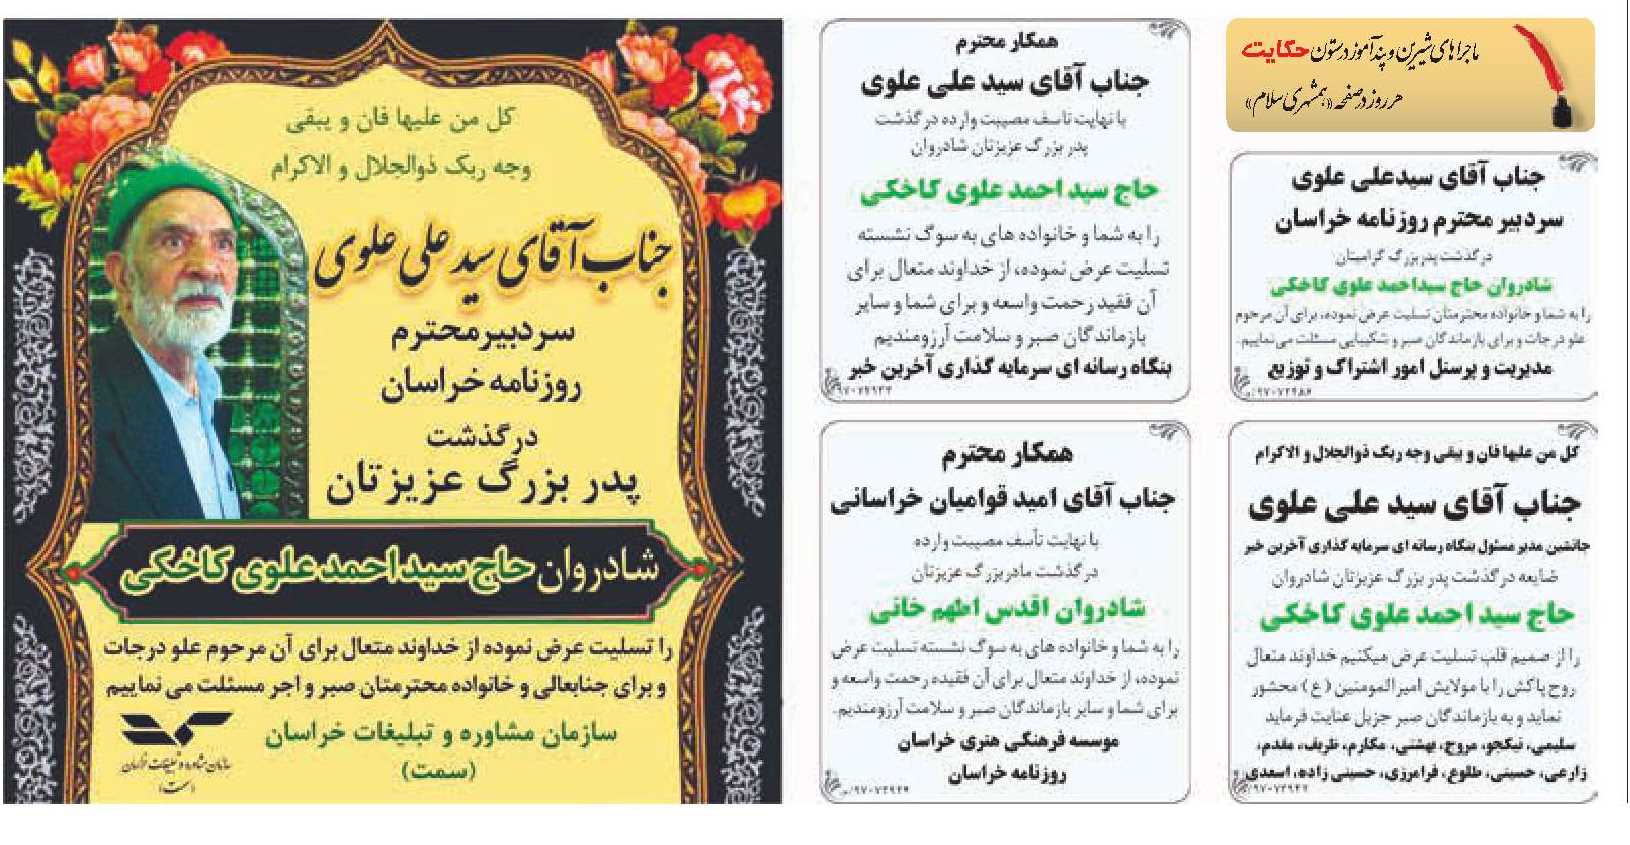 ماجراهای شیرین و پندآموز در ستون حکایت
هر روز در صفحه «همشهری سلام»
جناب آقای سیدعلی علوی
سردبیر محترم روزنامه خراسان
درگذشت پدربزرگ گرامیتان
شادروان حاج سیداحمد علوی کاخکی
را به شما و خانواده محترمتان تسلیت عرض نموده، برای آن مرحوم
علو درجات و برای بازماندگان صبر و شکیبایی مسئلت می نماییم.
مدیریت و پرسنل امور اشتراک و توزیع
کل من علیها فان و یبقی وجه ربک ذوالجلال و الاکرام
جناب آقای سید علی علوی
جانشین مدیر مسئول بنگاه رسانه ای سرمایه گذاری آخرین خبر
ضایعه درگذشت پدر بزرگ عزیزتان شادروان
حاج سید احمد علوی کاخکی
را از صمیم قلب تسلیت عرض میکنیم خداوند متعال
روح پاکش را با مولایش امیرالمومنین (ع) محشور
نماید و به بازماندگان صبر جزیل عنایت فرماید
سلیمی، نیکجو، مروج، بهشتی، مکارم، ظریف، مقدم،
زارعی، حسینی، طلوع، فرامرزی، حسینی زاده، اسعدی
همکار محترم
جناب آقای سید علی علوی
با نهایت تاسف مصیبت وارده درگذشت
پدر بزرگ عزیزتان شادروان
حاج سید احمد علوی کاخکی
را به شما و خانواده های به سوگ نشسته
تسلیت عرض نموده، از خداوند متعال برای
آن فقید رحمت واسعه و برای شما و سایر
بازماندگان صبر و سلامت آرزومندیم
بنگاه رسانه ای سرمایه گذاری آخرین خبر
همکار محترم
جناب آقای امید قوامیان خراسانی
با نهایت تأسف مصیبت وارده
درگذشت مادربزرگ عزیزتان
شادروان اقدس اطهم خانی
را به شما و خانواده های به سوگ نشسته تسلیت عرض
نموده، از خداوند متعال برای آن فقیده رحمت واسعه و
برای شما و سایر بازماندگان صبر و سلامت آرزومندیم.
موسسه فرهنگی هنری خراسان
روزنامه خراسان
کل من علیها فان و یبقی
وجه ربک ذوالجلال و الاکرام
جناب آقای سید علی علوی
سردبیر محترم
روزنامه خراسان
درگذشت
پدر بزرگ عزیزتان
شادروان حاج سید احمد علوی کاخکی
را تسلیت عرض نموده از خداوند متعال برای آن مرحوم علو درجات
و برای جنابعالی و خانواده محترمتان صبر و اجر مسئلت می نماییم
سازمان مشاوره و تبلیغات خراسان
(سمت)
سازمان مشاوره و تبلیغات خراسان
(سمت)